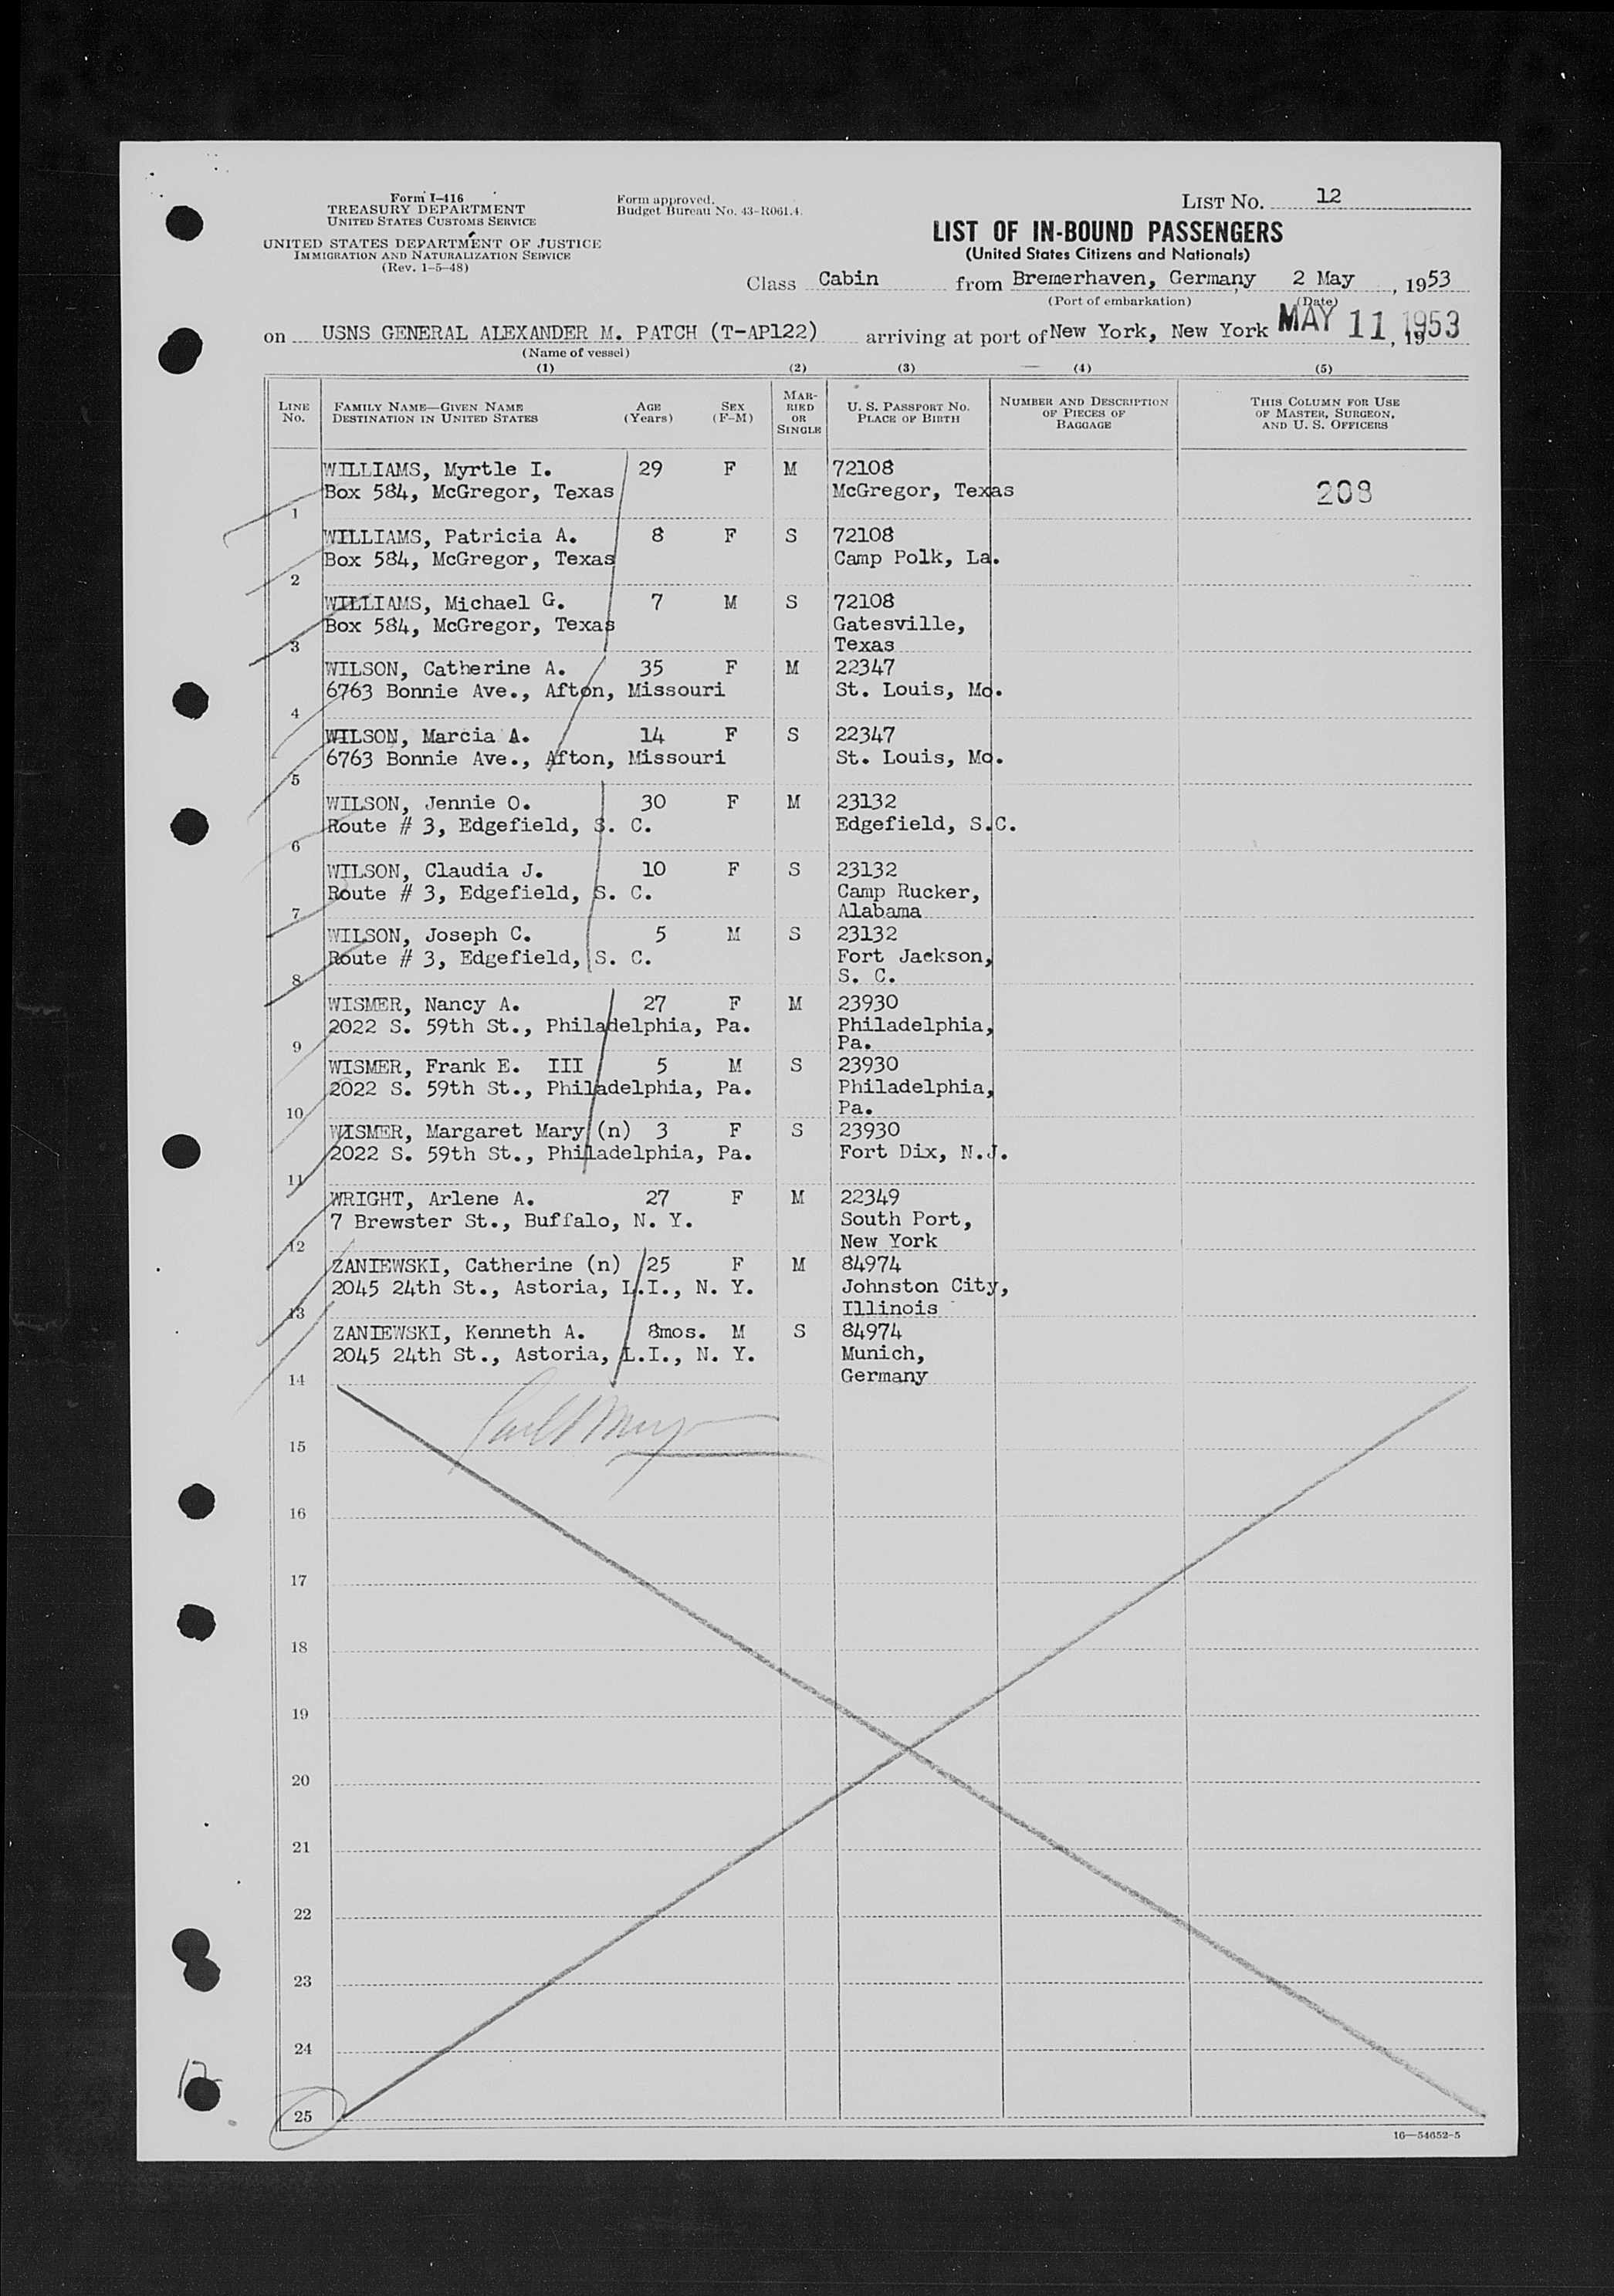 Form I-416
TREASURY DEPARTMENT
UNITED STATES CUSTOMS SERVICE
UNITED STATES DEPARTMENT OF JUSTICE
IMMIGRATION AND NATURALIZATION SERVICE
(Rev. 1-5-48)
Form approved.
Budget Bureau No. 43-R061.4.
LIST No. 12
LIST OF IN-BOUND PASSENGERS
(United States Citizens and Nationals)
Class Cabin from Bremerhaven, Germany, 2 May, 1953
(Port of embarkation) (Date)
on USNS GENERAL ALEXANDER M. PATCH (T-AP122) arriving at port of New York, New York MAY 11 1953, 19
(Name of vessel)
(1) (2) (3) (4) (5)
LINE No. FAMILY NAME—GIVEN NAME DESTINATION IN UNITED STATES AGE (Years) SEX (F-M) MARRIED OR SINGLE U. S. PASSPORT No. PLACE OF BIRTH NUMBER AND DESCRIPTION OF PIECES OF BAGGAGE THIS COLUMN FOR USE OF MASTER, SURGEON, AND U. S. OFFICERS
WILLIAMS, Myrtle I. 29 F M 72108
Box 584, McGregor, Texas McGregor, Texas 208
1
WILLIAMS, Patricia A. 8 F S 72108
Box 584, McGregor, Texas Camp Polk, La.
2
WILLIAMS, Michael G. 7 M S 72108
Box 584, McGregor, Texas Gatesville,
3 Texas
WILSON, Catherine A. 35 F M 22347
6763 Bonnie Ave., Afton, Missouri St. Louis, Mo.
4
WILSON, Marcia A. 14 F S 22347
6763 Bonnie Ave., Afton, Missouri St. Louis, Mo.
5
WILSON, Jennie O. 30 F M 23132
Route # 3, Edgefield, S. C. Edgefield, S.C.
6
WILSON, Claudia J. 10 F S 23132
Route # 3, Edgefield, S. C. Camp Rucker,
7 Alabama
WILSON, Joseph C. 5 M S 23132
Route # 3, Edgefield, S. C. Fort Jackson,
8 S. C.
WISMER, Nancy A. 27 F M 23930
2022 S. 59th St., Philadelphia, Pa. Philadelphia,
9 Pa.
WISMER, Frank E. III 5 M S 23930
2022 S. 59th St., Philadelphia, Pa. Philadelphia,
10 Pa.
WISMER, Margaret Mary (n) 3 F S 23930
2022 S. 59th St., Philadelphia, Pa. Fort Dix, N.J.
11
WRIGHT, Arlene A. 27 F M 22349
7 Brewster St., Buffalo, N. Y. South Port,
12 New York
ZANIEWSKI, Catherine (n) 25 F M 84974
2045 24th St., Astoria, L.I., N. Y. Johnston City,
13 Illinois
ZANIEWSKI, Kenneth A. 8mos. M S 84974
2045 24th St., Astoria, L.I., N. Y. Munich,
14 Germany
15
16
17
18
19
20
21
22
23
24
12
25
16—54652-5